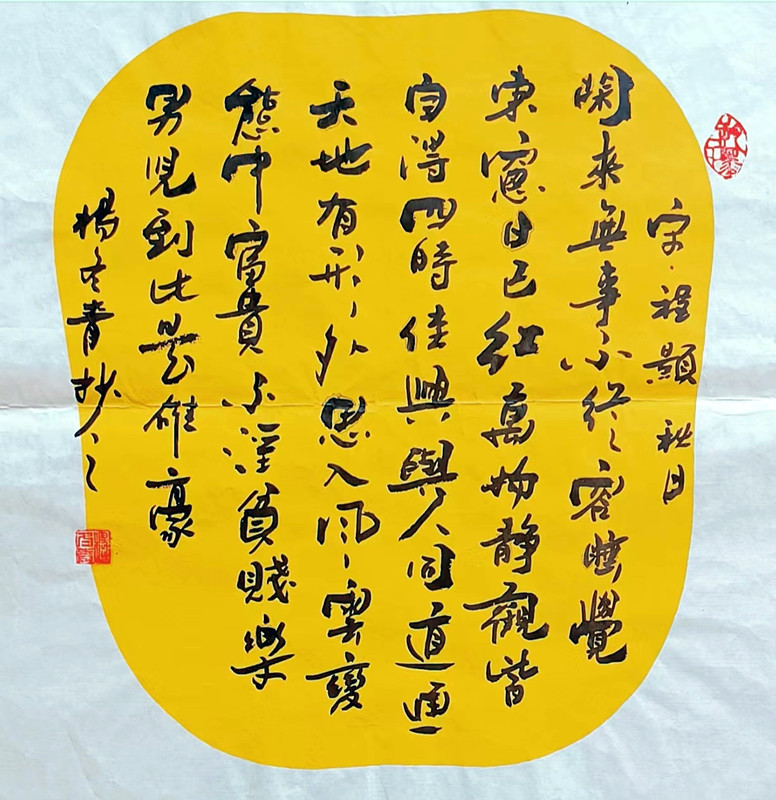 宋·程顥 秋日
閑來無事不從容睡覺
東窻日已紅萬物静觀皆
自得四時佳興與人同道通
天地有形外思入风雲變
態中富貴不淫貧賤樂
男兒到此是雄豪
楊冬青抄之